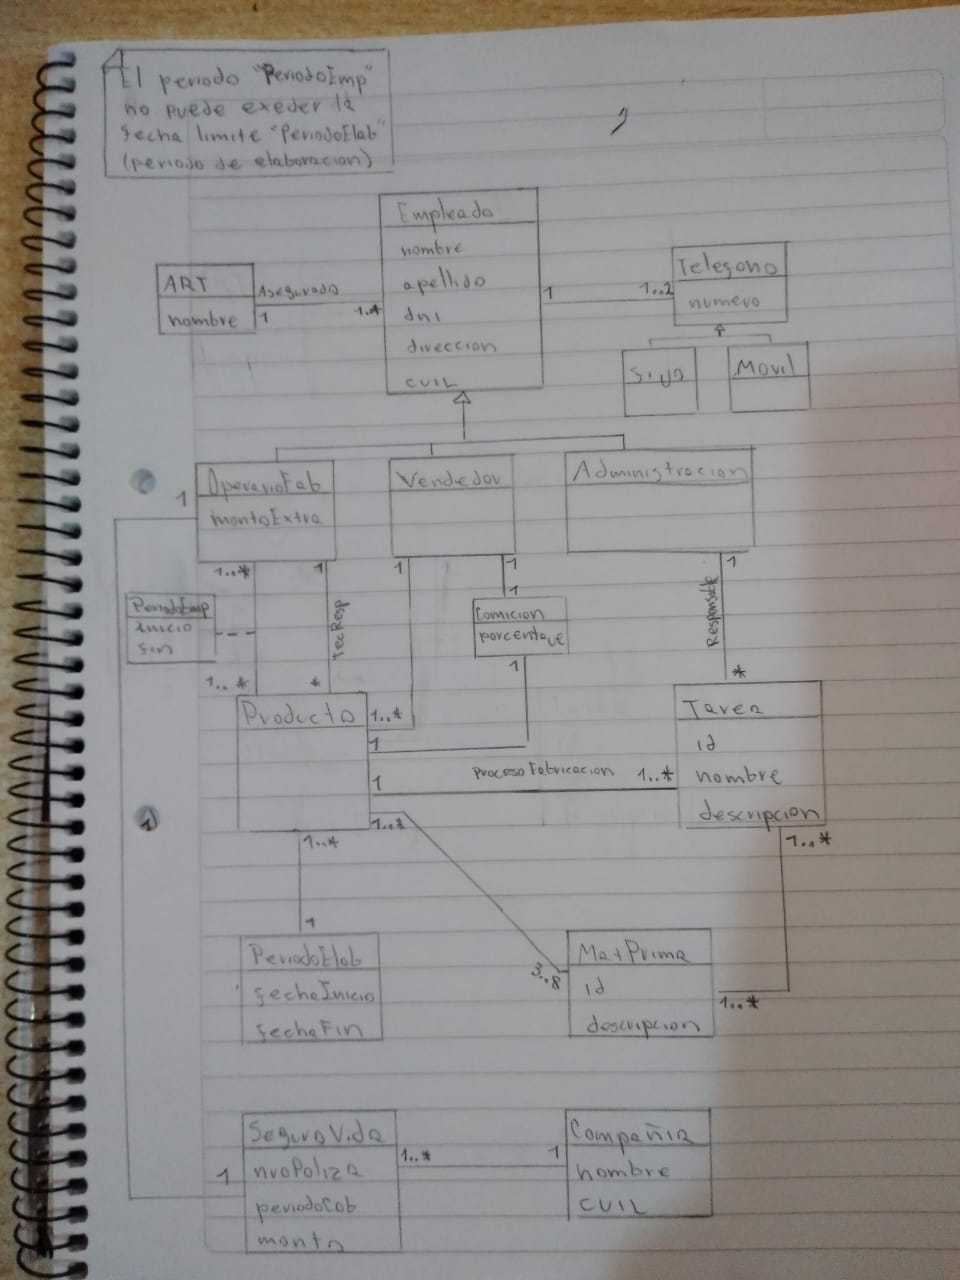 El periodo "PeriodoEmp"
no puede exeder la
fecha limite "PeriodoElab"
(periodo de elaboracion)
Empleado
nombre
apellido
dni
direccion
CUIL
ART
nombre
Asegurado
1
1..*
1
1..2
Telefono
numero
Fijo
Movil
OperarioFab
montoExtra
Vendedor
Administracion
1
1..*
1
1
1
1
PeriodoEmp
inicio
fin
TecResp
1
Comicion
porcentaje
1
Responsable
1..*
*
*
Producto
1..*
1
1
ProcesoFabricacion
1..*
1..*
Tarea
id
nombre
descripcion
1..*
1..*
1
PeriodoElab
fechaInicio
fechaFin
3..8
MatPrima
id
descripcion
1..*
SeguroVida
nroPoliza
periodoCob
monto
1
1..*
1
Compañia
nombre
CUIL